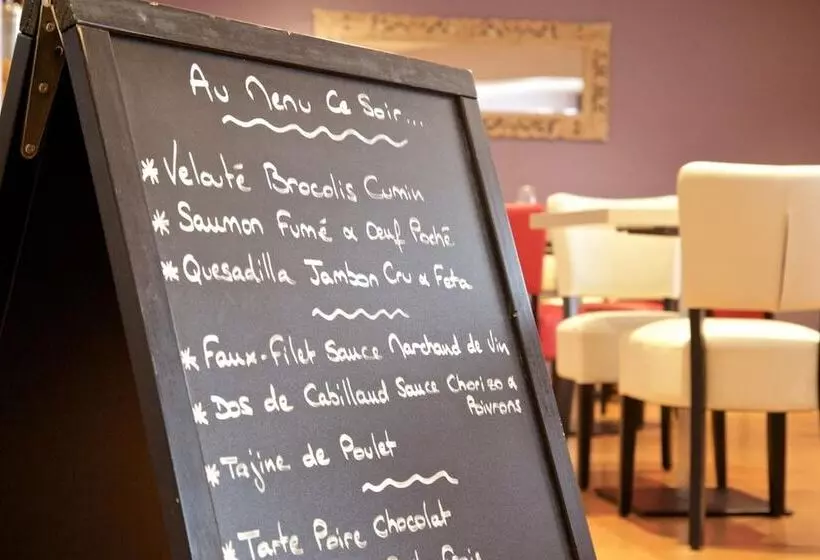 Au Menu Ce Soir...
* Velouté Brocolis Cumin
* Saumon Fumé & Oeuf Poché
* Quesadilla Jambon Cru & Feta
* Faux-Filet Sauce Marchand de Vin
* Dos de Cabillaud Sauce Chorizo &
Poivrons
* Tajine de Poulet
* Tarte Poire Chocolat